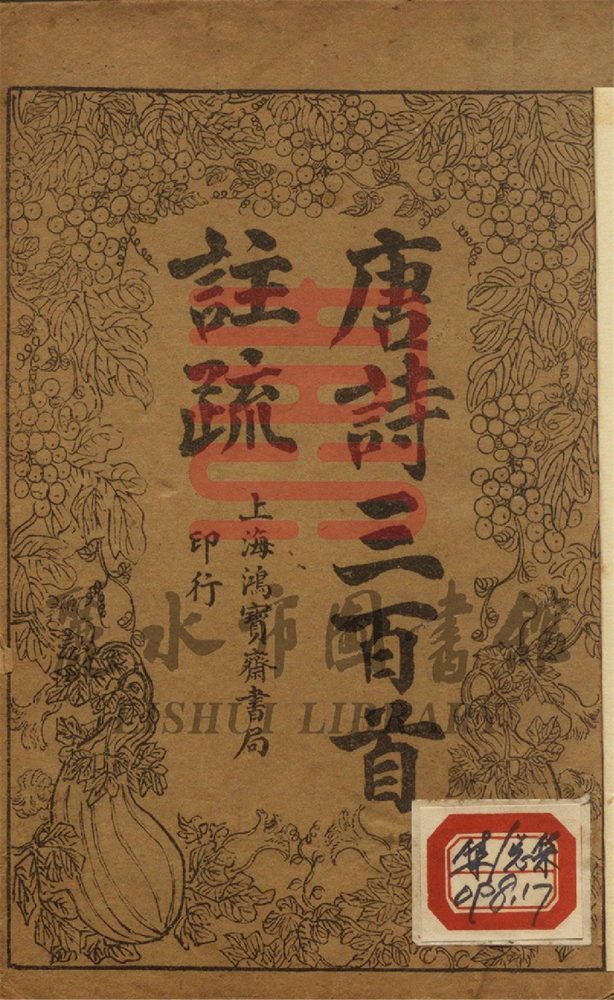 唐詩三百首
註疏
上海鴻寶齋書局
印行
麗水市圖書館
LISHUI LIBRARY
集/总集
098.17